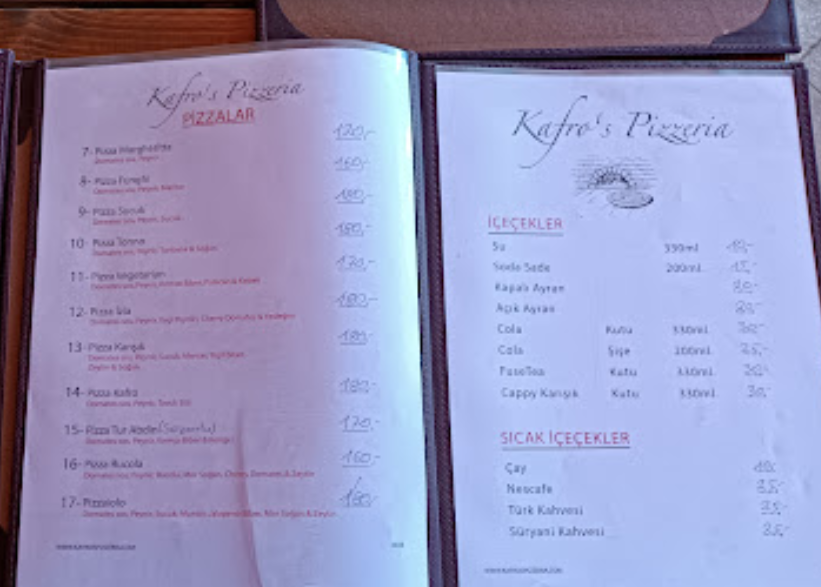 Kafro's Pizzeria
PİZZALAR
7- Pizza Margherita 120,-
Domates sos, Peynir
8- Pizza Funghi 160,-
Domates sos, Peynir, Mantar
9- Pizza Sucuk 180,-
Domates sos, Peynir, Sucuk
10- Pizza Tonno 180,-
Domates sos, Peynir, Tonbalık & Soğan
11- Pizza Vegetarian 170,-
Domates sos, Peynir,
12- Pizza İzla 180,-
Domates sos, Peynir, Cherry Domates & Fesleğen
13- Pizza Karışık 180,-
Domates sos, Peynir, Sucuk, Mantar, Yeşil Biber
Zeytin & Soğan
14- Pizza Kafro 180,-
Domates sos, Peynir,
15- Pizza Tur Abdin 170,-
Domates sos, Peynir,
16- Pizza Rucola 160,-
Domates sos, Peynir, Rucola, Mor Soğan, Cherry Domates & Zeytin
17- Pizzaiolo 180,-
Domates sos, Peynir, Sucuk, Mantar, Mor Soğan & Zeytin
Kafro's Pizzeria
İÇEÇEKLER
Su 330ml 10,-
Soda Sade 200ml 15,-
Kapalı Ayran
Açık Ayran
Cola Kutu 330ml 30,-
Cola Şişe 200ml 25,-
FuseTea Kutu 330ml 30,-
Cappy Karışık Kutu 330ml 30,-
SICAK İÇEÇEKLER
Çay 10,-
Nescafe 35,-
Türk Kahvesi 35,-
Süryani Kahvesi 35,-